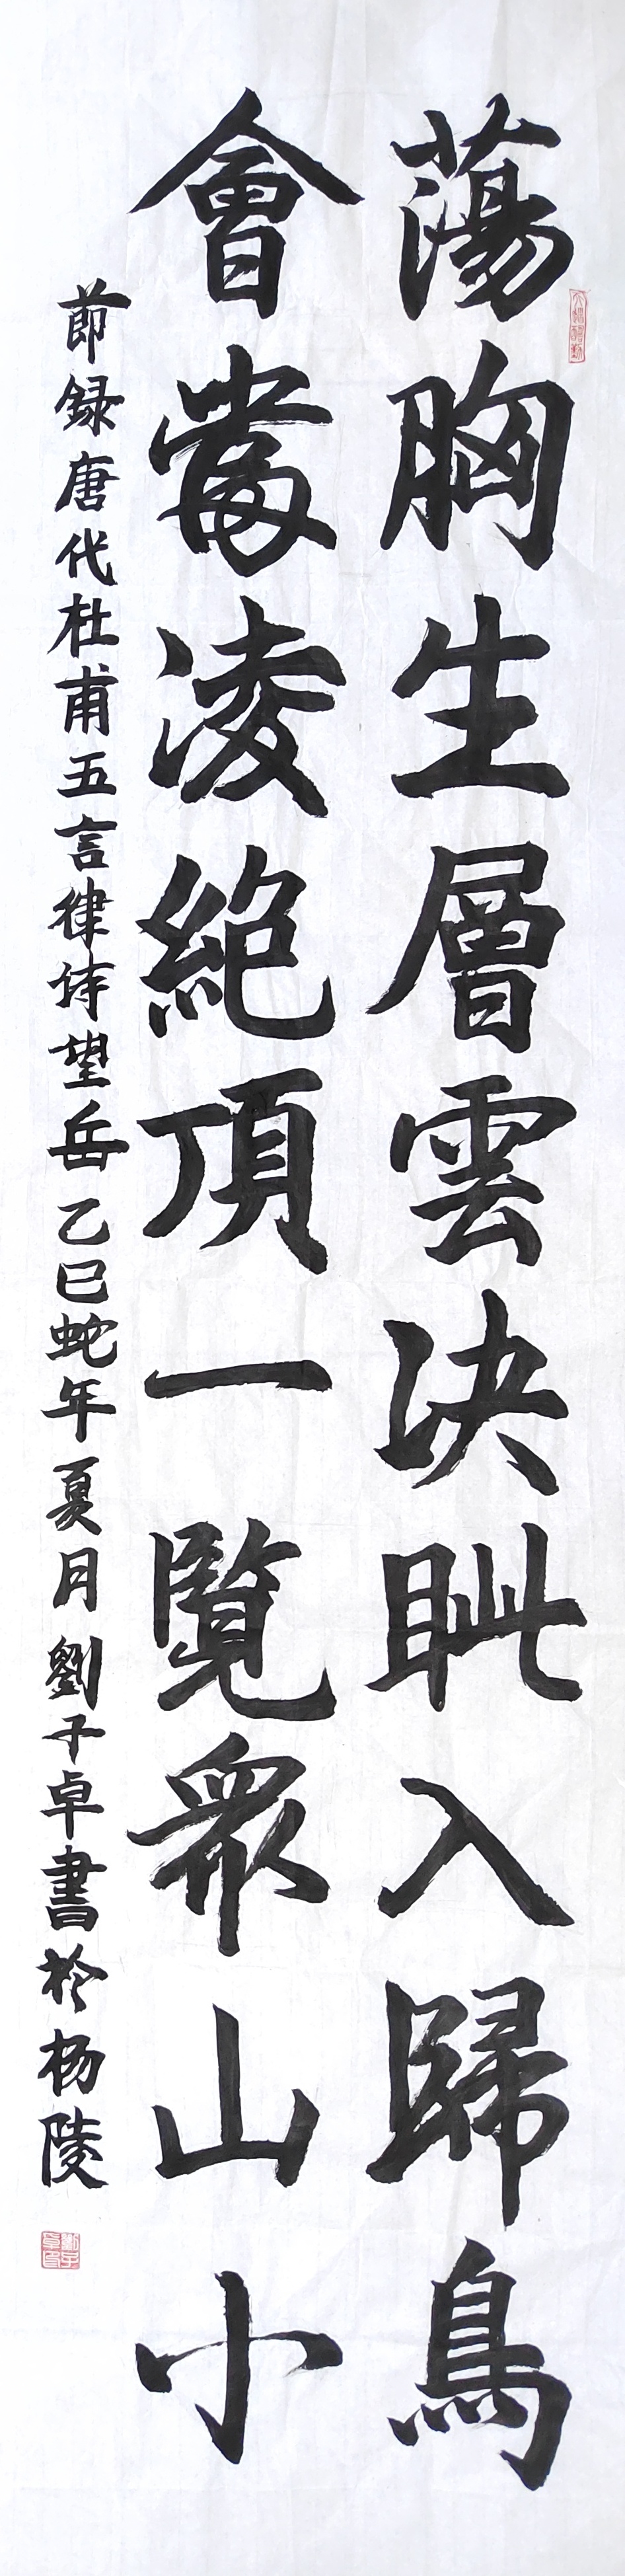 蕩胸生層雲決眦入歸鳥
會當凌絕頂一覽衆山小
節録唐代杜甫五言律詩望岳乙巳蛇年夏月劉子卓書於杨陵